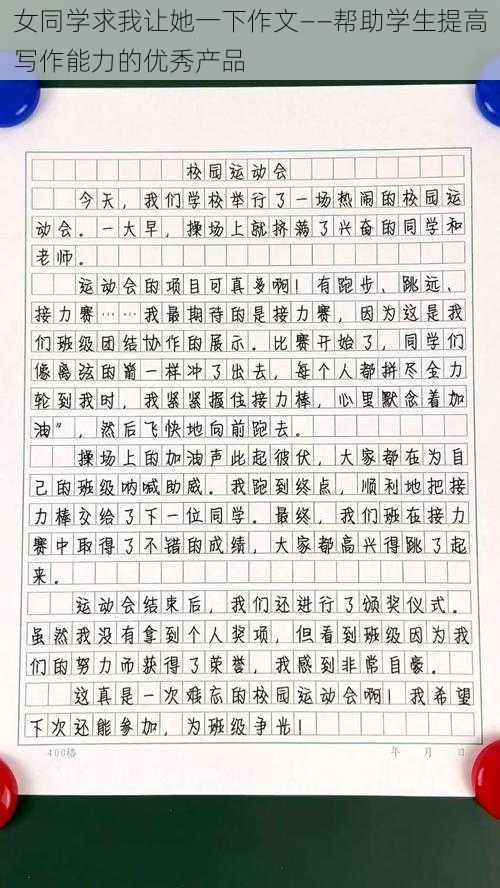 女同学求我让她一下作文——帮助学生提高
写作能力的优秀产品
校园运动会
今天，我们学校举行了一场热闹的校园运
动会。一大早，操场上就挤满了兴奋的同学和
老师。
运动会的项目可真多啊！有跑步、跳远、
接力赛……我最期待的是接力赛，因为这是我
们班级团结协作的展示。比赛开始了，同学们
像离弦的箭一样冲了出去，每个人都拼尽全力
轮到我时，我紧紧握住接力棒，心里默念着加
油”，然后飞快地向前跑去。
操场上的加油声此起彼伏，大家都在为自
己的班级呐喊助威。我跑到终点，顺利地把接
力棒交给了下一位同学。最终，我们班在接力
赛中取得了不错的成绩，大家都高兴得跳了起
来。
运动会结束后，我们还进行了颁奖仪式。
虽然我没有拿到个人奖项，但看到班级因为我
们的努力而获得了荣誉，我感到非常自豪。
这真是一次难忘的校园运动会啊！我希望
下次还能参加，为班级争光！
400格 年 月 日